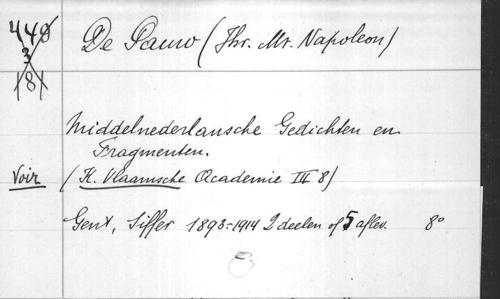 448
3
181
De Pauw (Jhr. Mr. Napoleon)
Middelnederlansche Gedichten en
Fragmenten.
Voir
(K. Vlaamsche Academie III 8)
Gent, Siffer 1893-1914 2 deelen of 5 aflev. 8°